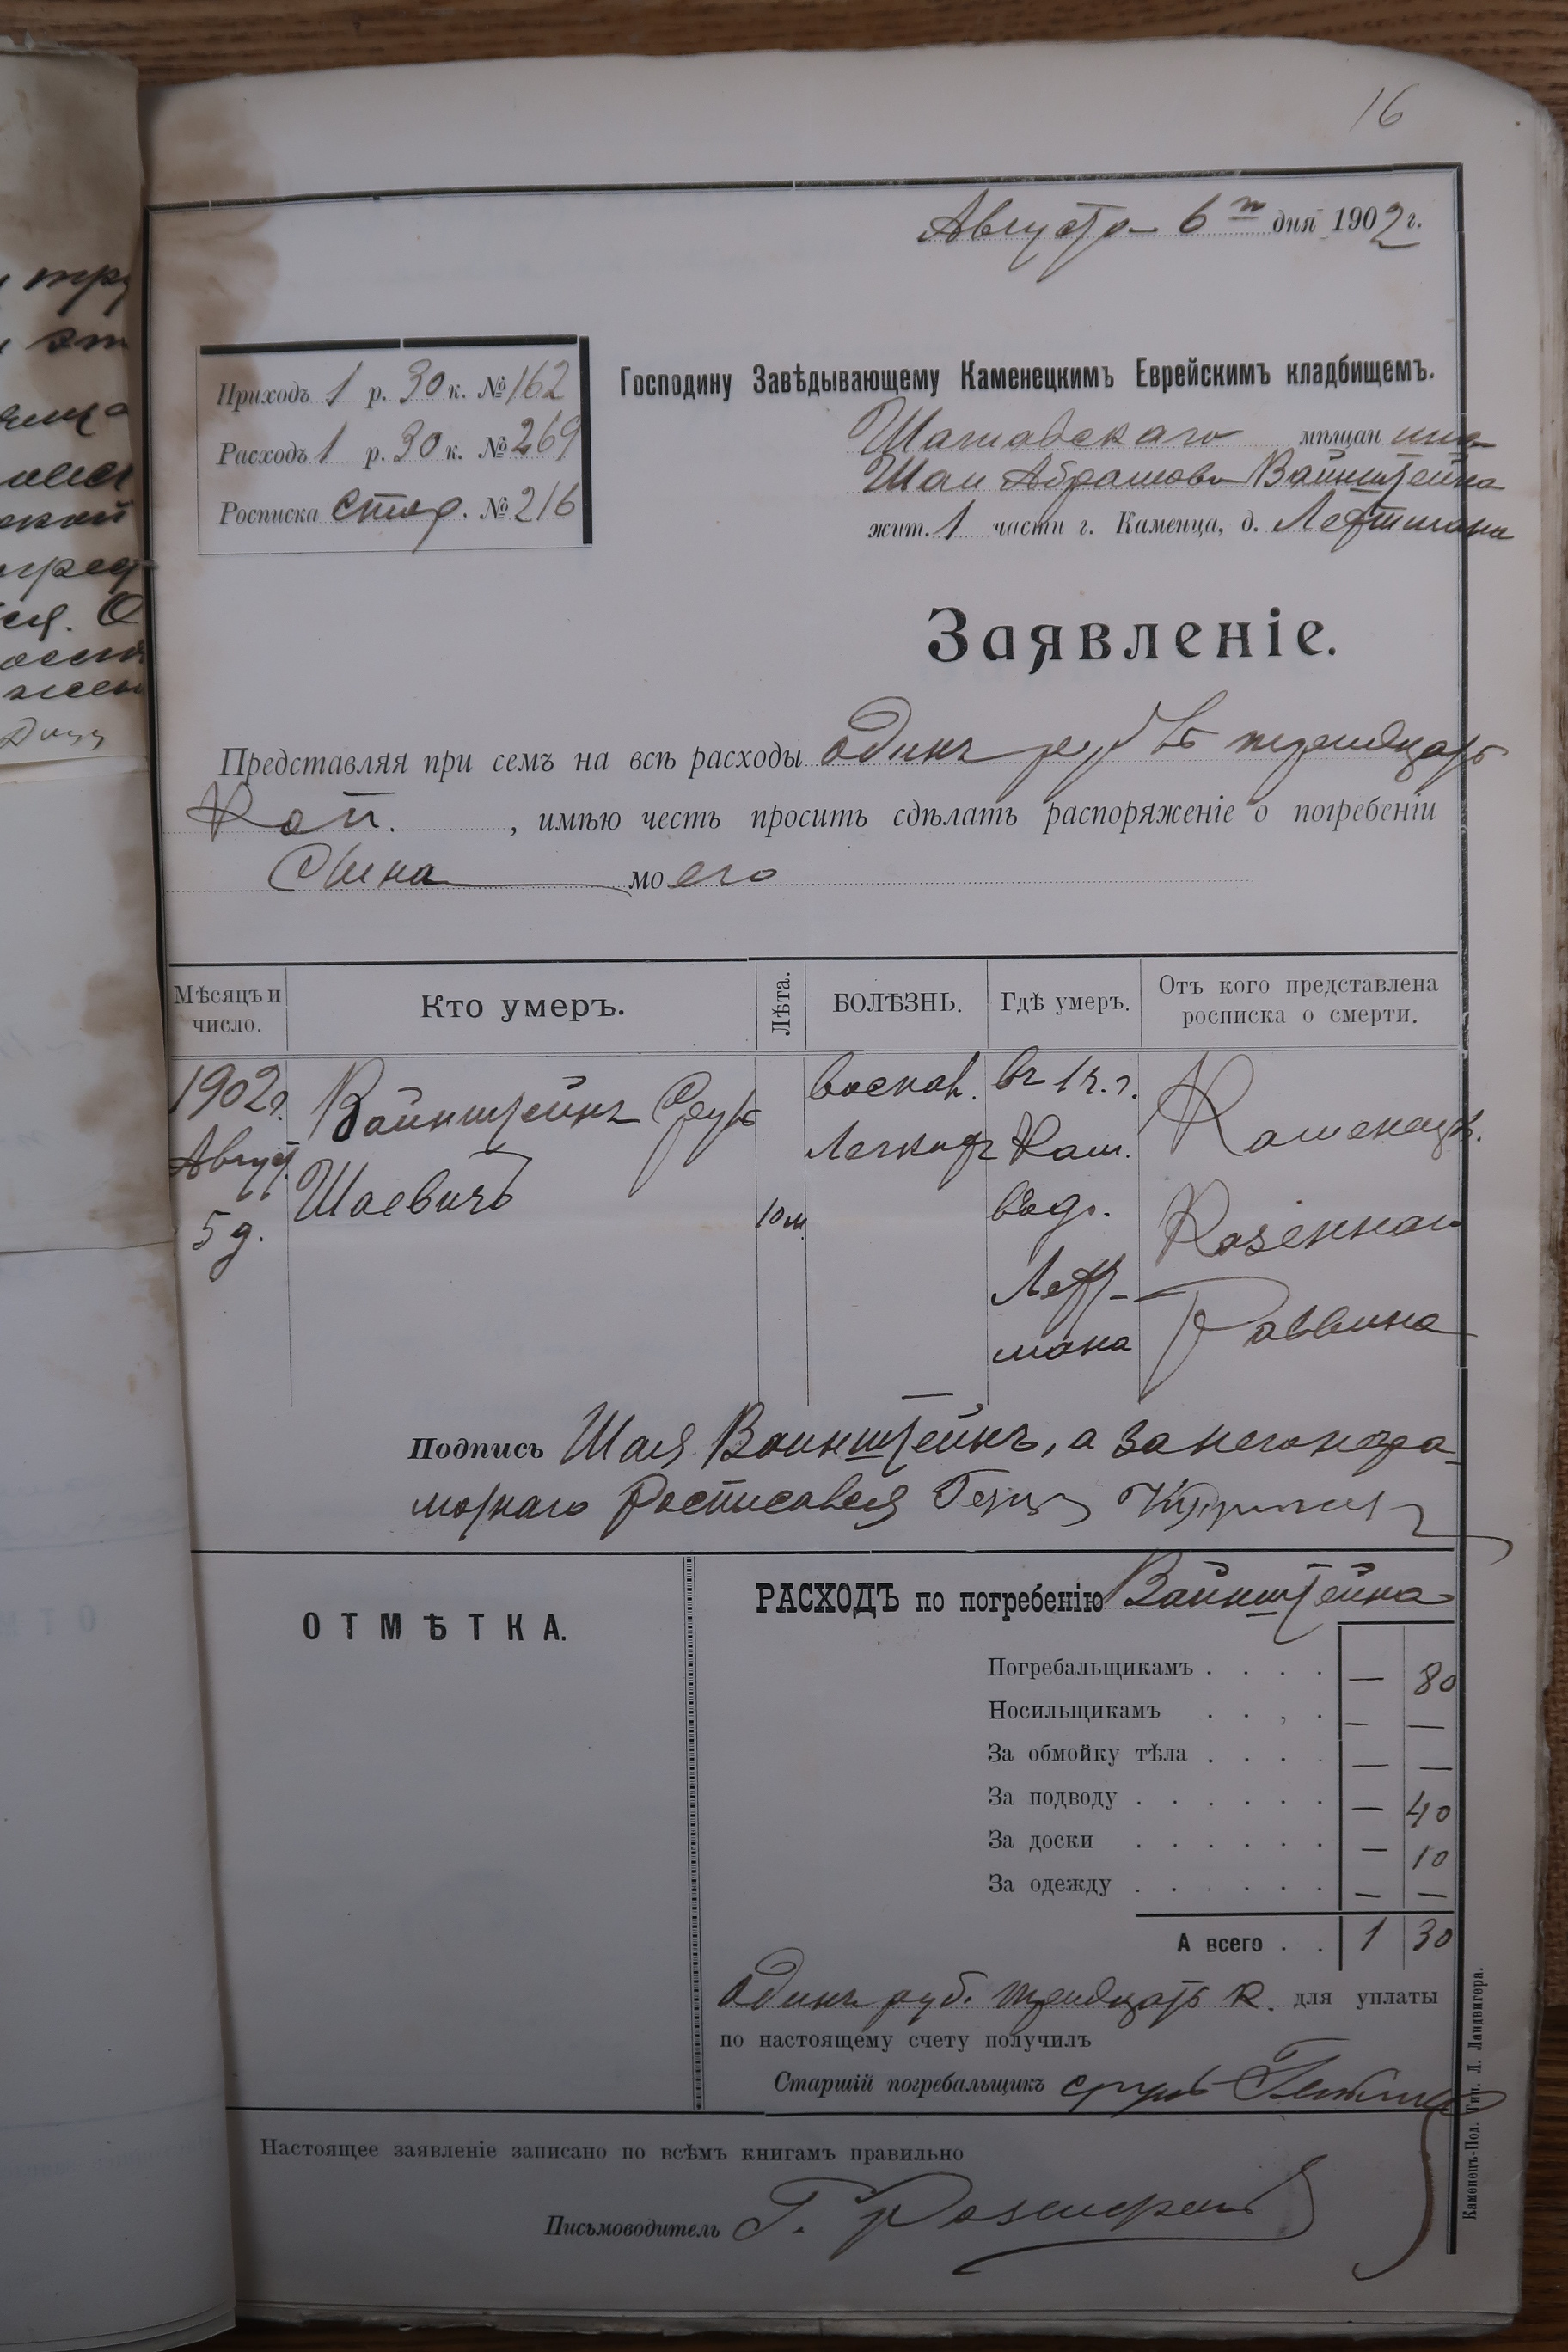 16
Августа 6го дня 1902 г.
Приходъ 1 р. 30 к. № 162
Расходъ 1 р. 30 к. № 269
Росписка стар. № 216
Господину Завѣдывающему Каменецкимъ Еврейскимъ кладбищемъ.
Шатавскаго мѣщанина
Шаи Абрамова Вайнштейна
жит. 1 части г. Каменца, д. Лефтмана
Заявленіе.
Представляя при семъ на всѣ расходы одинъ рубль тридцать
Коп. , имѣю честь просить сдѣлать распоряженіе о погребеніи
Сына моего
Мѣсяцъ и число.
Кто умеръ.
Лѣта.
БОЛѢЗНЬ.
Гдѣ умеръ.
Отъ кого представлена росписка о смерти.
1902 г.
Август.
5 д.
Вайнштейнъ
Шаевичъ
10 м.
воспал.
Легкихъ
въ 1 ч. г.
Кам.
въ д.
Лефт-
мана
Каменецк.
Казеннаго
Раввина
Подпись Шая Вайнштейнъ, а за него негра-
мотнаго Росписався Герш
ОТМѢТКА.
РАСХОДЪ по погребенію Вайнштейна
Погребальщикамъ . . . . — 80
Носильщикамъ . . , . — —
За обмойку тѣла . . . . — —
За подводу . . . . . . — 40
За доски . . . . . . — 10
За одежду . . . . . . — —
А всего . . 1 30
одинъ руб. тридцать к. для уплаты
по настоящему счету получилъ
Старшій погребальщикъ
Настоящее заявленіе записано по всѣмъ книгамъ правильно
Письмоводитель Г.
Каменецъ-Под. Тип. Л. Ландвигера.